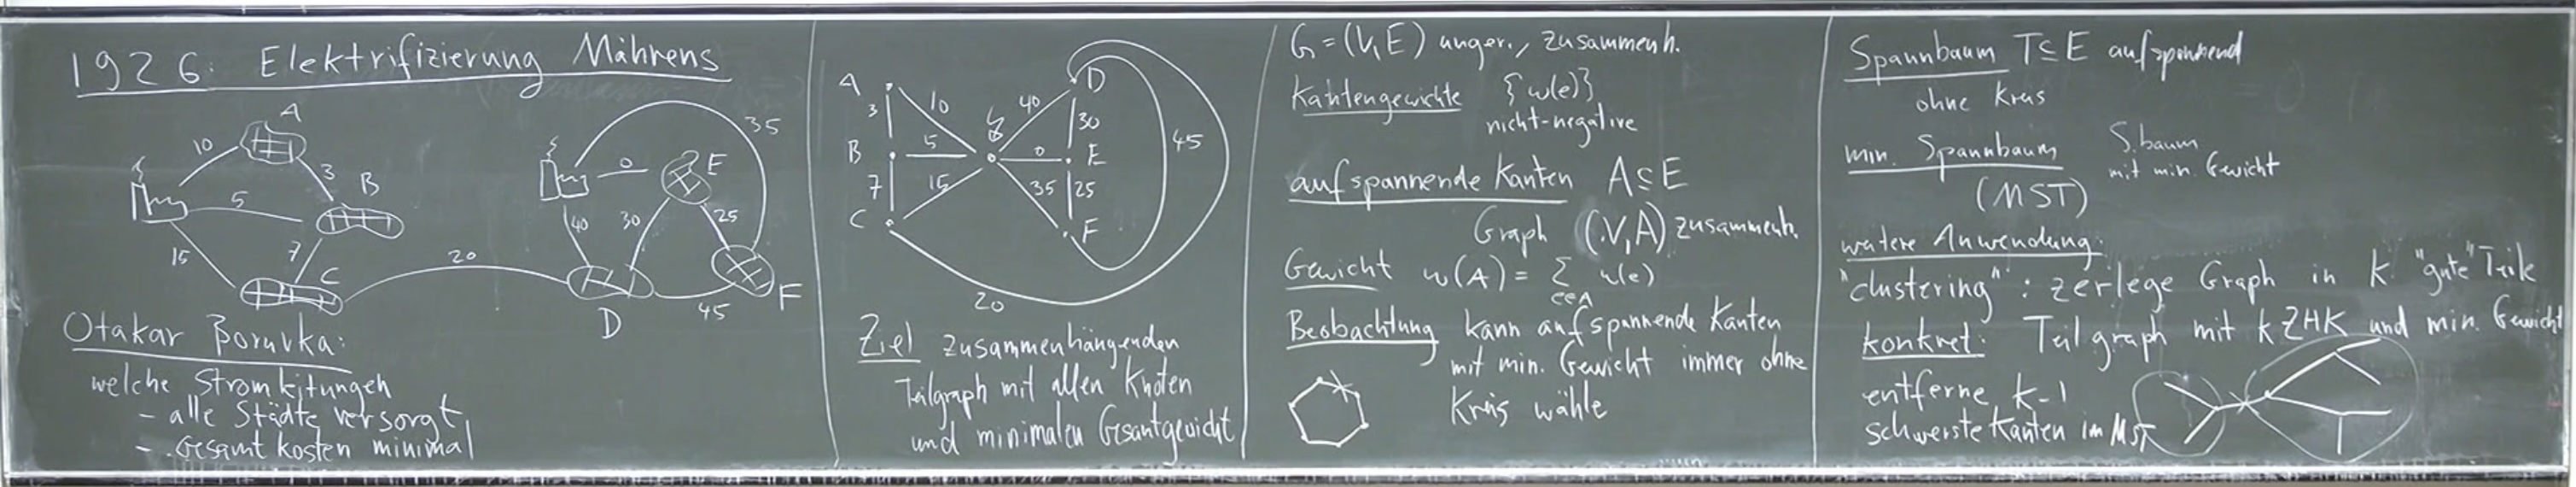 1926: Elektrifizierung Mährens
A
10
3
B
5
15
7
C
20
35
0
E
40
30
25
D
45
F
Otakar Boruvka:
welche Stromleitungen
- alle Städte versorgt
- Gesamtkosten minimal
A
3
10
B
5
7
15
C
40
D
30
0
E
35
25
F
45
20
Ziel zusammenhängenden
Teilgraph mit allen Knoten
und minimalem Gesamtgewicht
G = (V,E) unger., zusammenh.
Kantengewichte {w(e)}
nicht-negative
aufspannende Kanten A ⊆ E
Graph (V,A) zusammenh.
Gewicht w(A) = Σ w(e)
e∈A
Beobachtung kann aufspannende Kanten
mit min. Gewicht immer ohne
Kreis wähle
Spannbaum T ⊆ E aufspannend
ohne Kreis
min. Spannbaum S.baum
mit min. Gewicht
(MST)
weitere Anwendung:
"clustering": zerlege Graph in k "gute" Teile
konkret: Teilgraph mit k ZHK und min. Gewicht
entferne k-1
schwerste Kanten im MST